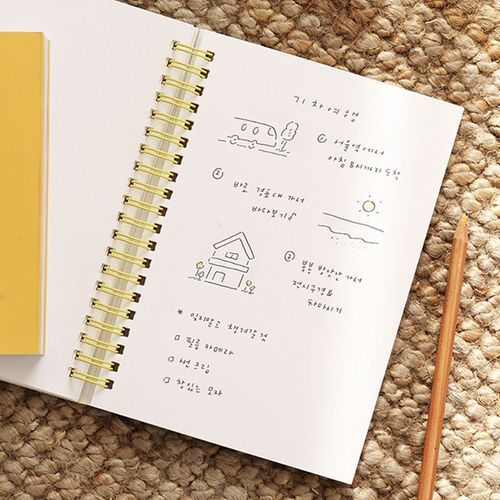 기차여행
① 서울역에서
아침 8시까지 도착
② 바로 경포대 가서
바다보기♪
③ 뿅뿅 방앗간 가서
전시구경&
차마시기
* 잊지말고 챙겨갈 것
□ 필름 카메라
□ 썬 크림
□ 창있는 모자